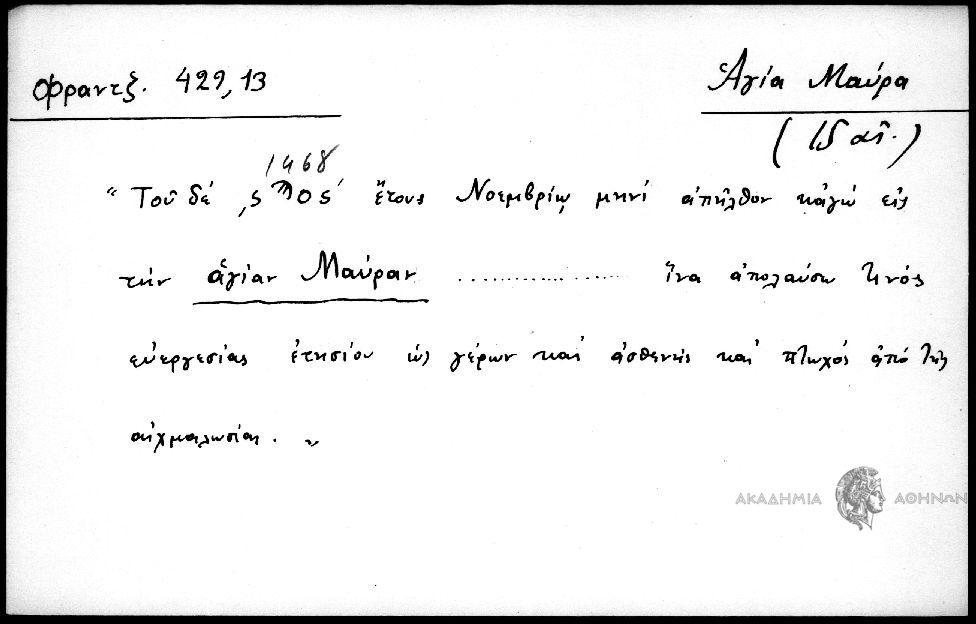 Φραντζ. 429,13
Ἁγία Μαύρα
(ΙΕ αἰ.)
1468
"Τοῦ δέ ,ς϶οςʹ ἔτους Νοεμβρίῳ μηνί ἀπῆλθον κἀγώ εἰς
τήν ἁγίαν Μαύραν .................... ἵνα ἀπολαύσω τινός
εὐεργεσίας ἐτησίου ὡς γέρων καί ἀσθενής καί πτωχός ἀπό τῆς
αἰχμαλωσίας. "
ΑΚΑΔΗΜΙΑ ΑΘΗΝΩΝ